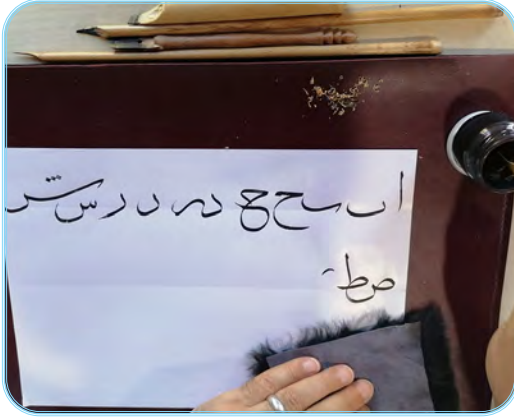 ا ٮ ح ح در د ر س س
ص ط